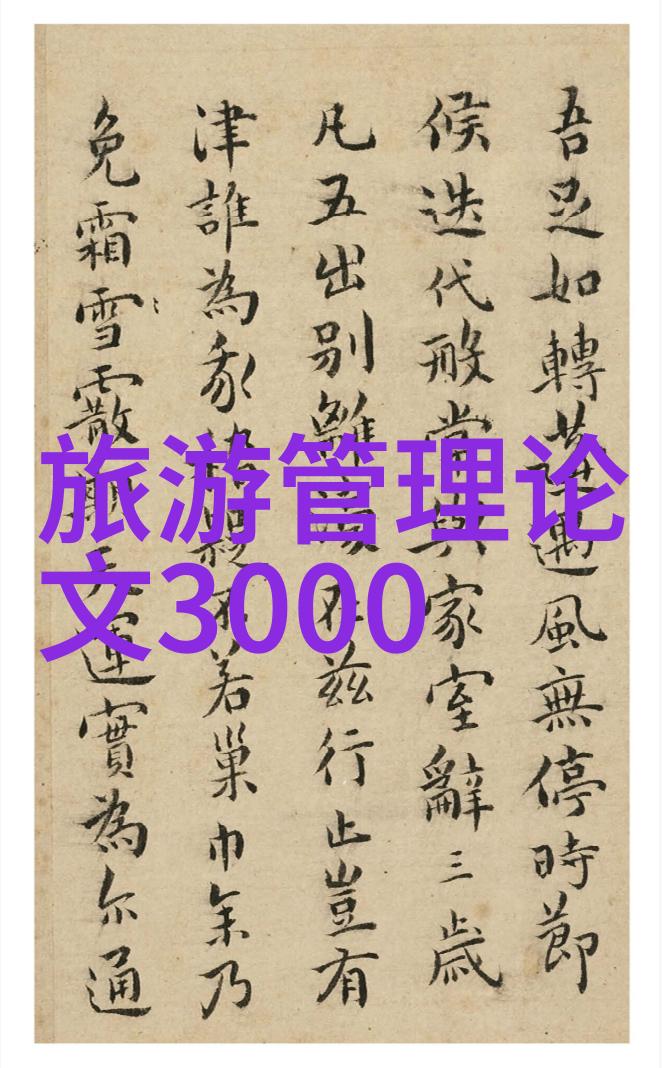 吾足如轉蓬遇風無停時節
候迭代常與家室辭三歲
凡五出別離在茲行止豈有
津誰為不若巢巾余乃
免霜雪霰天運實為尔通
旅游管理论
文3000